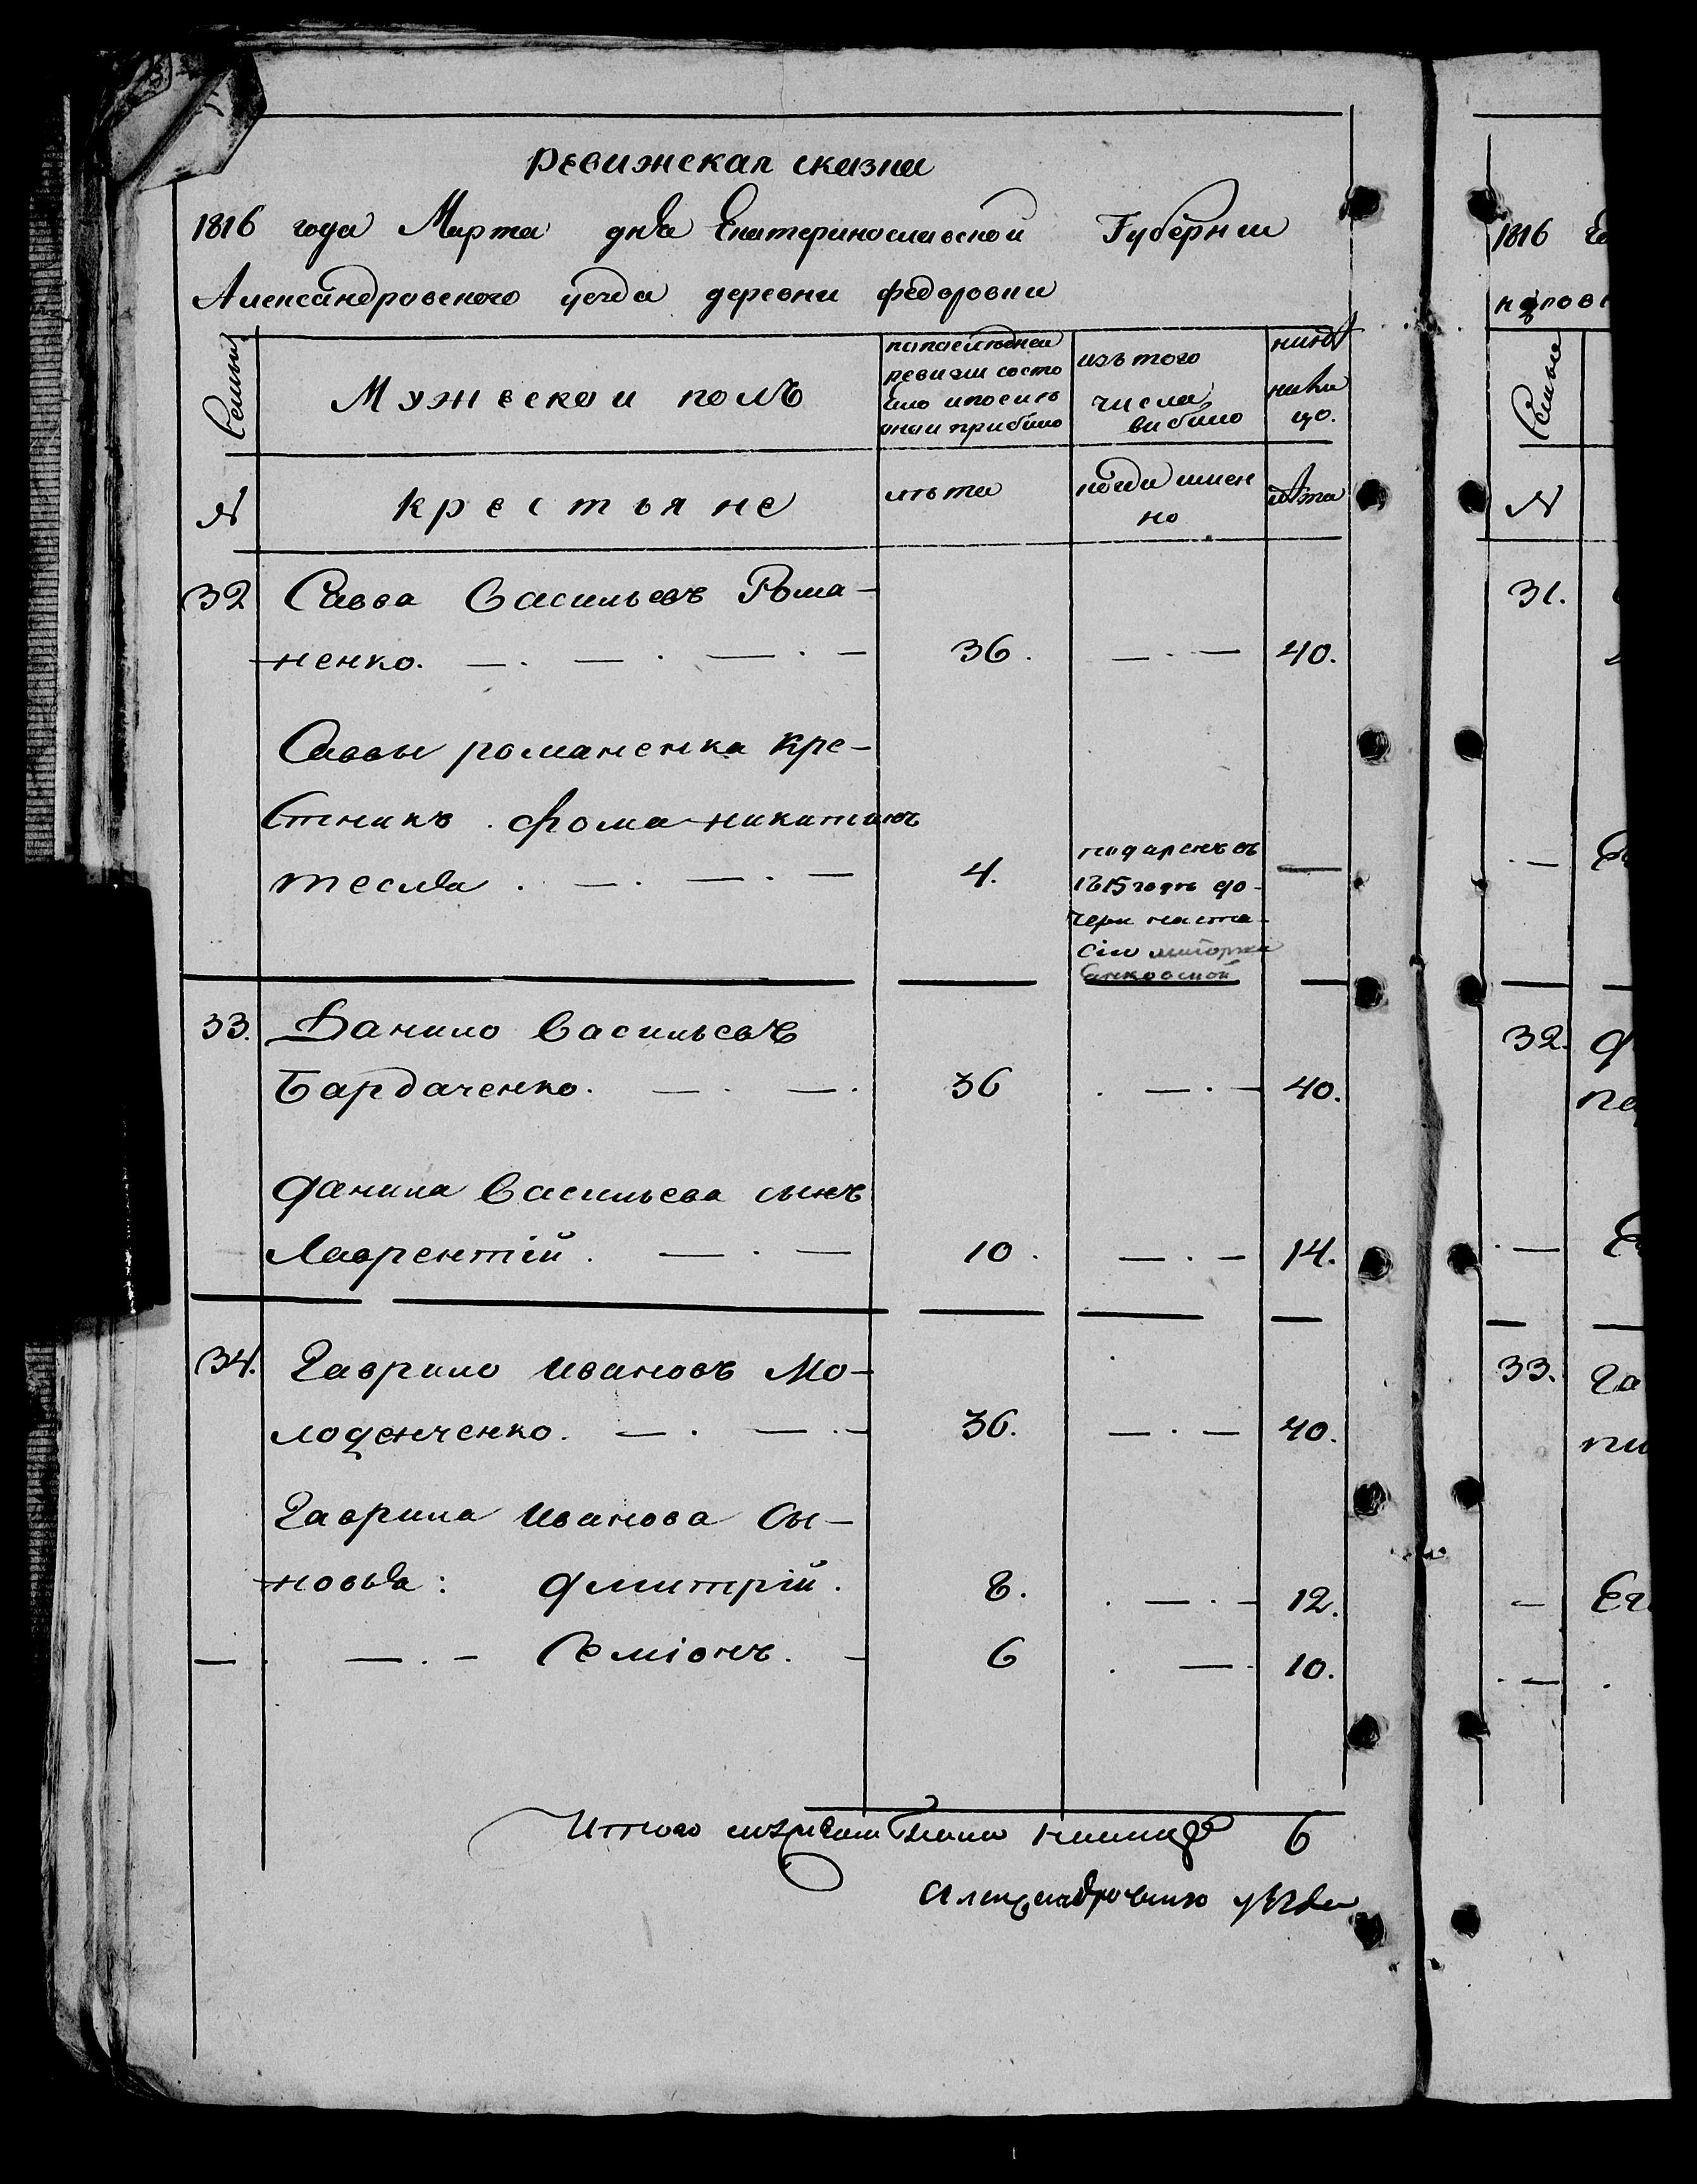 Ревижская сказка
1816 года Марта дня Екатеринославской Губернии
Александровского уезда деревни Федоровки
Семьи
Мужеской полъ
попоследней ревизии состо яло ипосле оной прибыло
изъ того числа выбило
ныне налицо.
№
крестьяне
лѣта
когда имен но
лѣта
32 Савва Васильевъ Рома-
ненко. 36. 40.
Саввы романенка кре-
стникъ. Фома никитинъ
тесля. 4.
подаренъ въ
1815 годѣ до-
чери наста-
сіи
33. Данило Васильевъ
Бардаченко. 36 40.
Данила Васильева сынъ
Лаврентій. 10. 14.
34. Гаврило Ивановъ Мо-
лоденченко. 36. 40.
Гаврила Иванова сы-
новья: Дмитрій. 8. 12.
Семіонъ. 6 10.
Итого налицо 6
Александровского уезда
1816
Семьи
№
31.
32.
33.